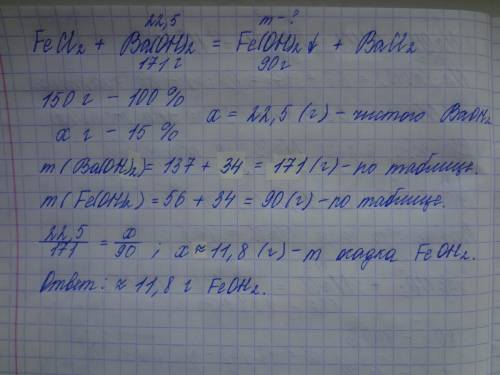 22,5 m-?
FeCl₂ + Ba(OH)₂ = Fe(OH)₂↓ + BaCl₂
171 г 90 г
150 г - 100 %
x г - 15 %
x = 22,5 (г) - чистого BaOH₂
m(Ba(OH)₂) = 137 + 34 = 171 (г) - по таблице.
m(Fe(OH)₂) = 56 + 34 = 90 (г) - по таблице.
22,5/171 = x/90 ; x ≈ 11,8 (г) - m осадка FeOH₂.
Ответ: ≈ 11,8 г FeOH₂.